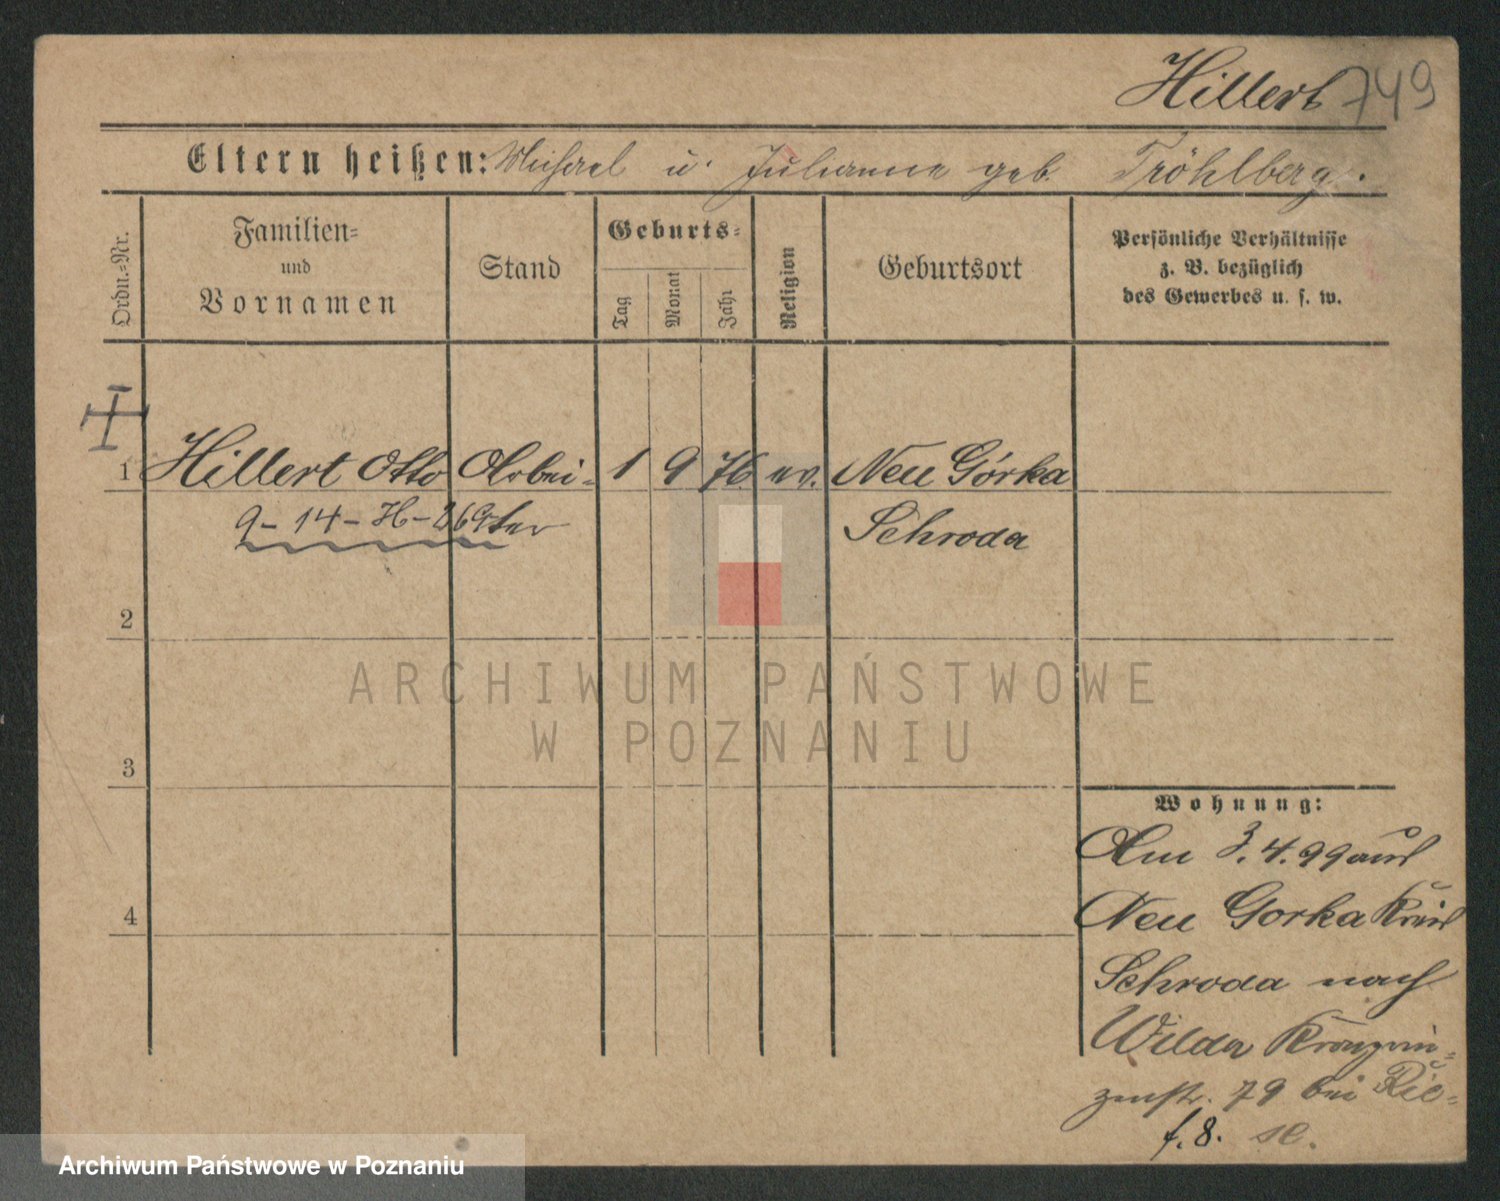 Hillert 749
Eltern heißen: Michael u. Julianne geb. Fröhlberg.
Ordn.=Nr.
Familien=
und
Vornamen
Stand
Geburts=
Tag
Monat
Jahr
Religion
Geburtsort
Persönliche Verhältnisse
z. B. bezüglich
des Gewerbes u. s. w.
1 Hillert Otto Arbei= 1 9 76 ev. Neu Górka
9-14-H-269 ter Schroda
2
3
4
Wohnung:
Am 3.4.99 aus
Neu Gorka Kreis
Schroda nach
Wilda Kronprin=
zenstr. 79 bei
f. 8.
ARCHIWUM PAŃSTWOWE
W POZNANIU
Archiwum Państwowe w Poznaniu